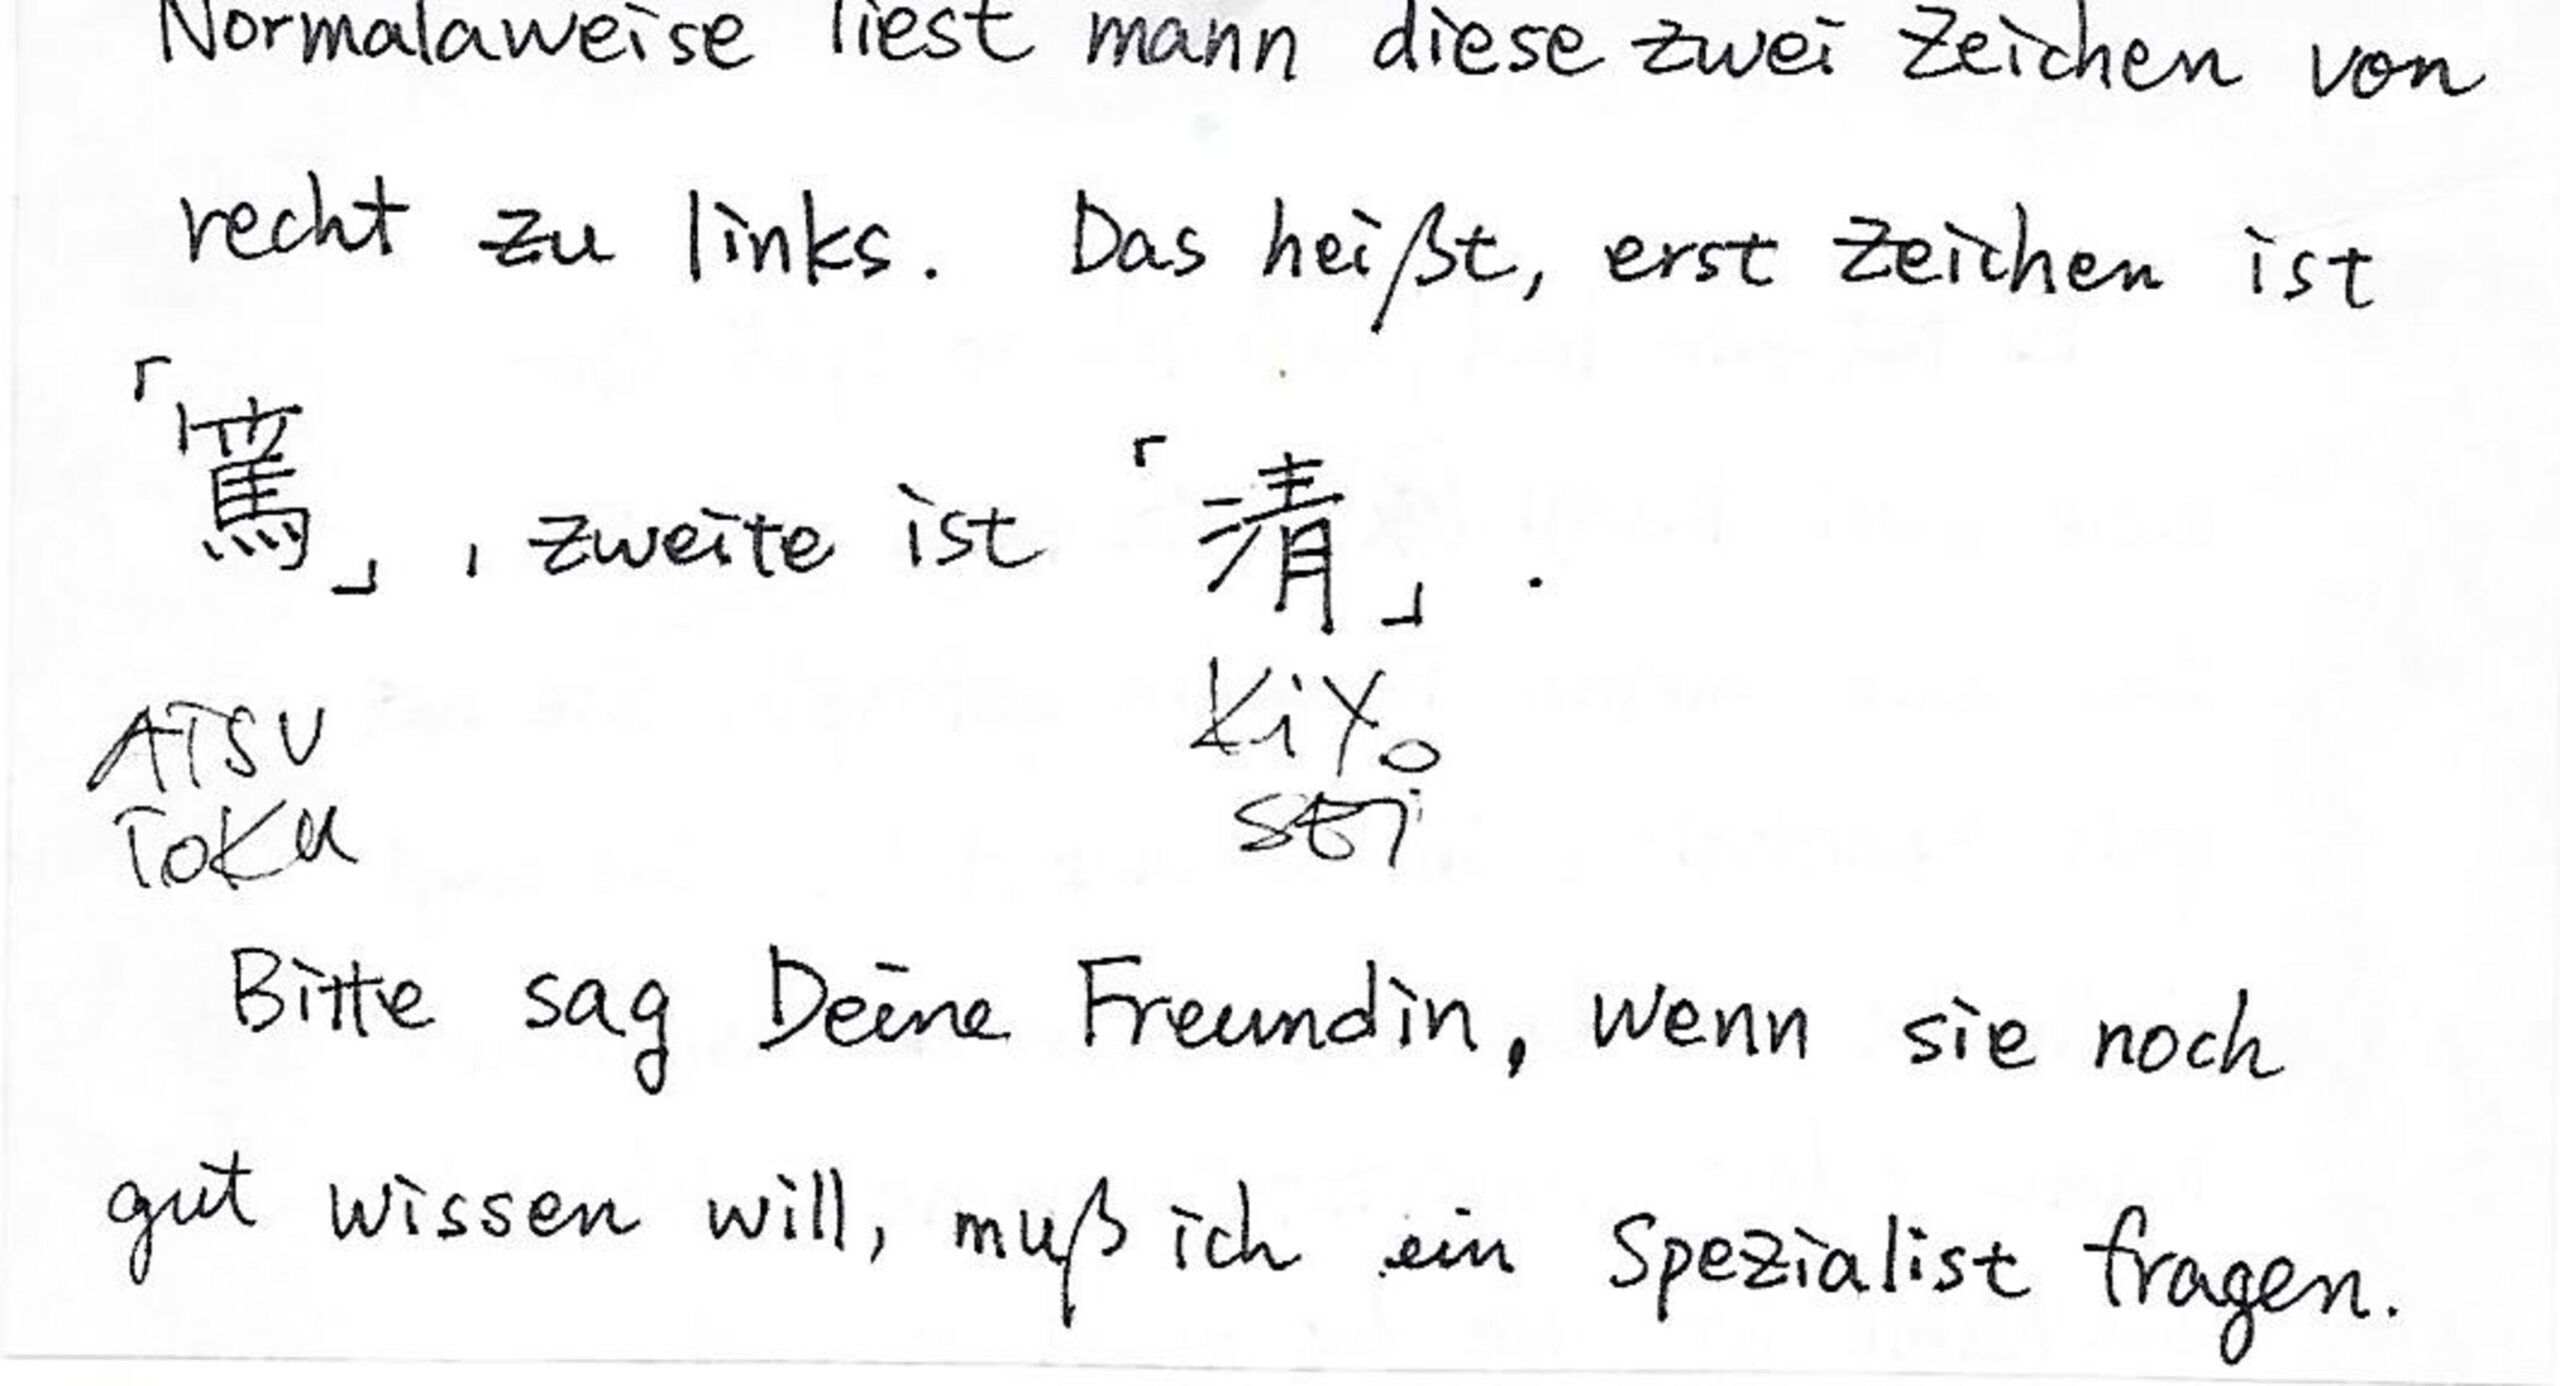 Normalaweise liest mann diese zwei Zeichen von
recht zu links. Das heißt, erst Zeichen ist
「篤」, zweite ist 「清」.
ATSU KiYo
ToKu SEi
Bitte sag Deine Freundin, wenn sie noch
gut wissen will, muß ich ein Spezialist fragen.